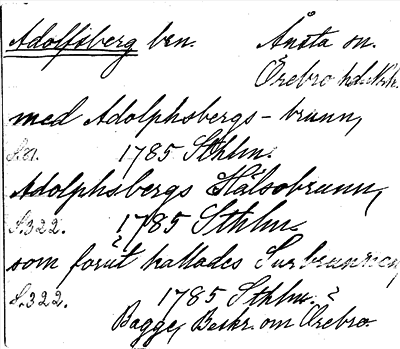 Adolfsberg ben. Ånsta sn.
Örebro hd. Nrk.
med Adolphsbergs-brunn,
S.21. 1785 Sthlm.
Adolphsbergs Hälsobrunn,
S.322. 1785 Sthlm.
som förut kallades Surbrunnen,
S.322. 1785 Sthlm. ?
Bagge, Beskr. om Örebro.